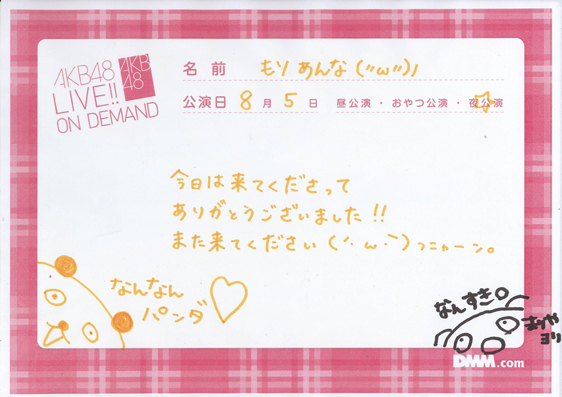 AKB48
LIVE!!
ON DEMAND
AKB
48
名前 もり あんな (〃ω〃)ノ
公演日 8月5日 昼公演・おやつ公演・夜公演
今日は来てくださって
ありがとうございました!!
また来てください(´・ω・`)つニャーン。
なんなん
パンダ
なんすき。
より
DMM.com